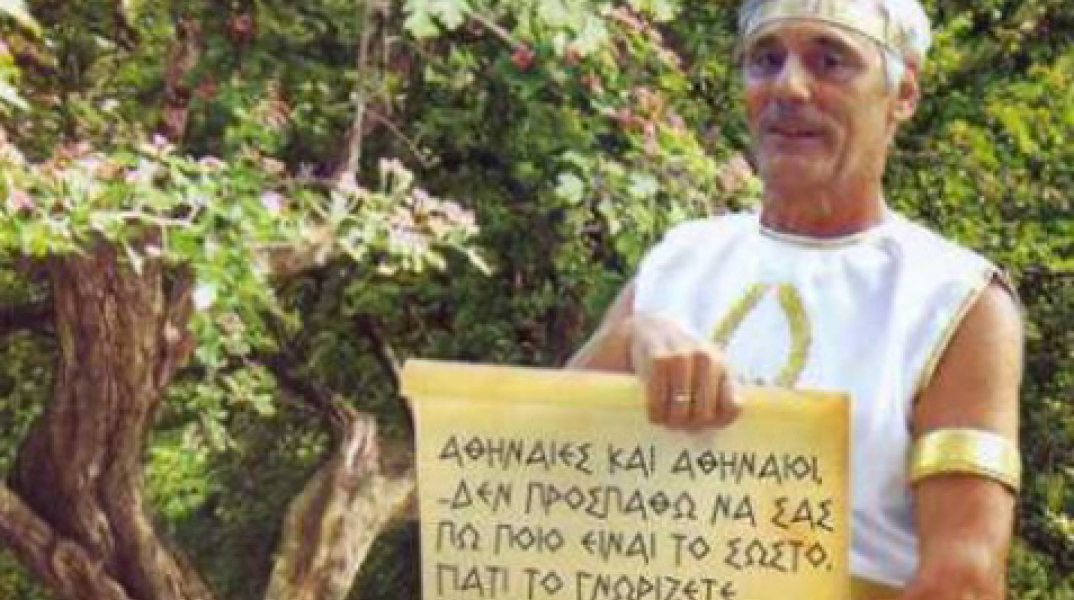 ΑΘΗΝΑΙΕΣ ΚΑΙ ΑΘΗΝΑΙΟΙ,
-ΔΕΝ ΠΡΟΣΠΑΘΩ ΝΑ ΣΑΣ
ΠΩ ΠΟΙΟ ΕΙΝΑΙ ΤΟ ΣΩΣΤΟ,
ΓΙΑΤΙ ΤΟ ΓΝΩΡΙΖΕΤΕ